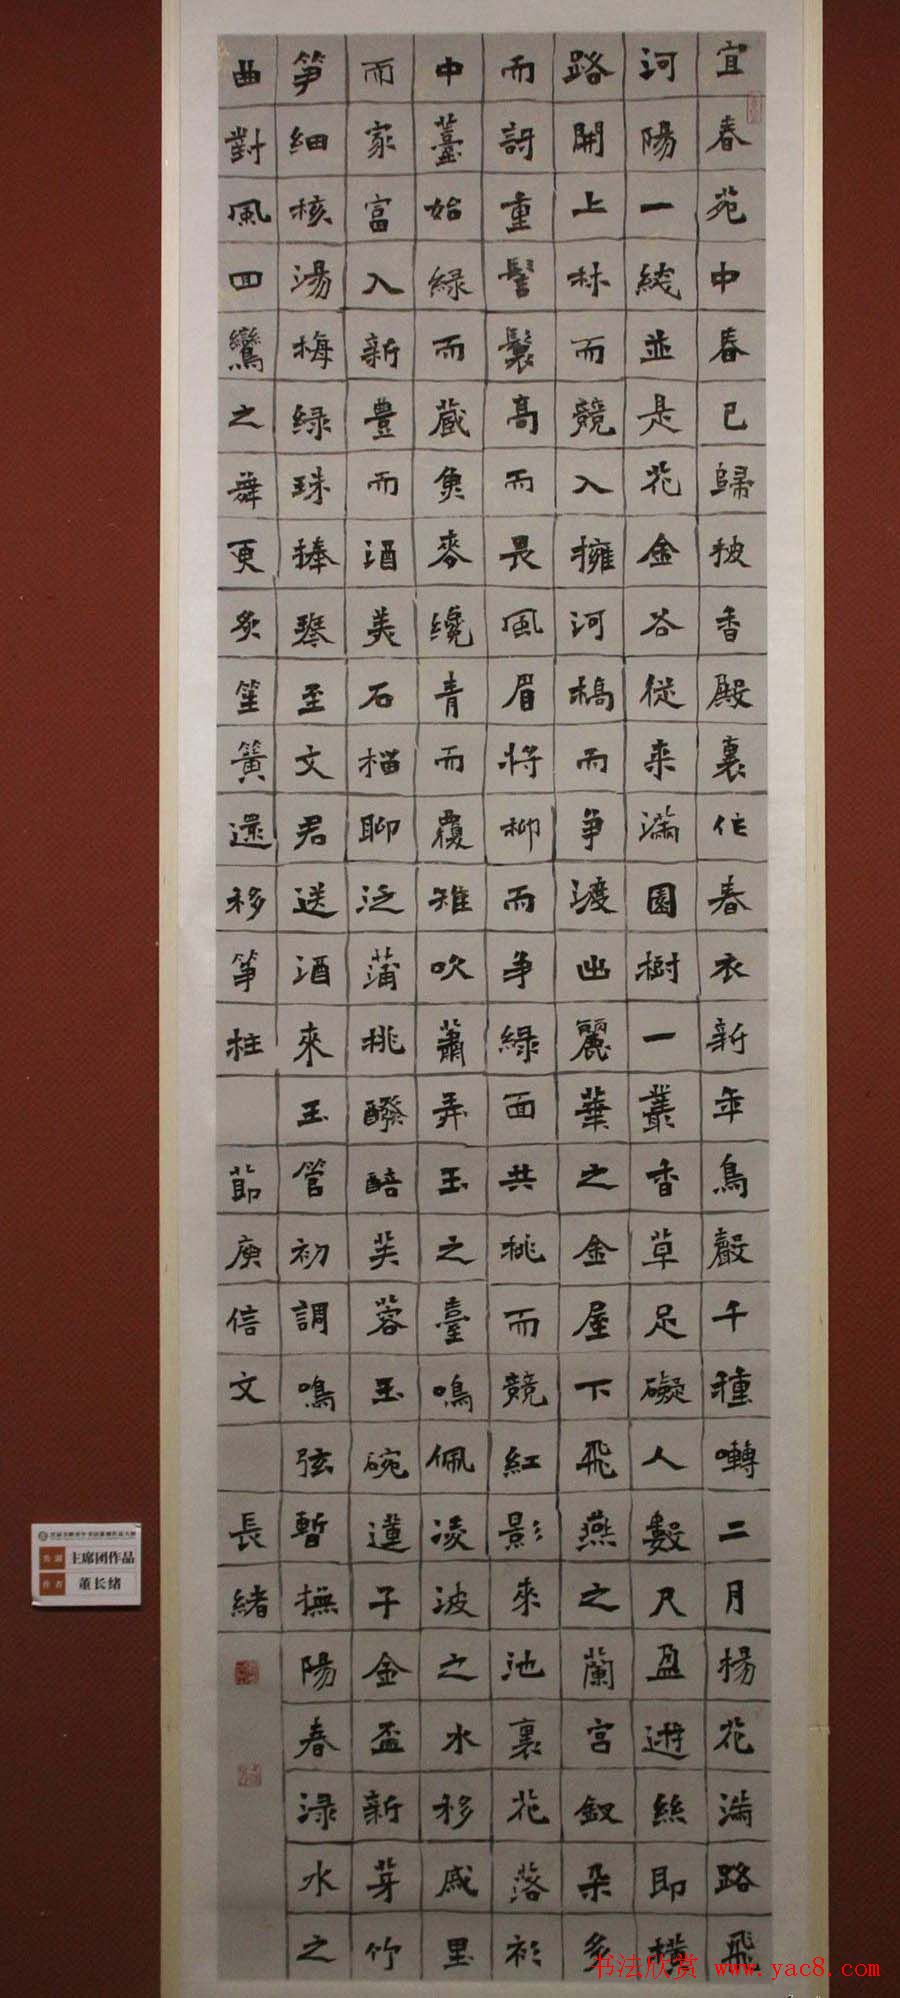 宜春苑中春已歸披香殿裏作春衣新年鳥聲千種囀二月楊花滿路飛
河陽一縣並是花金谷從來滿園樹一叢香草足礙人數尺遊絲即橫
路開上林而競入擁河橋而爭渡出麗華之金屋下飛燕之蘭宮釵朵多
而訝重髻鬟高而畏風眉將柳而爭綠面共桃而競紅影來池裏花落衫
中薹始綠而藏魚麥纔青而覆雉吹蕭弄玉之臺鳴佩凌波之水移戚里
而家富入新豊而酒美石榴聊泛蒲桃醱醅芙蓉玉碗蓮子金盃新芽竹
笋細核湯梅绿珠捧琴至文君送酒來玉管初調鳴弦暫撫陽春渌水之
曲對風回鸞之舞更炙笙簧還移箏柱 節庾信文 長緒
主席团作品
作者 董长绪
书法欣赏 www.yac8.com